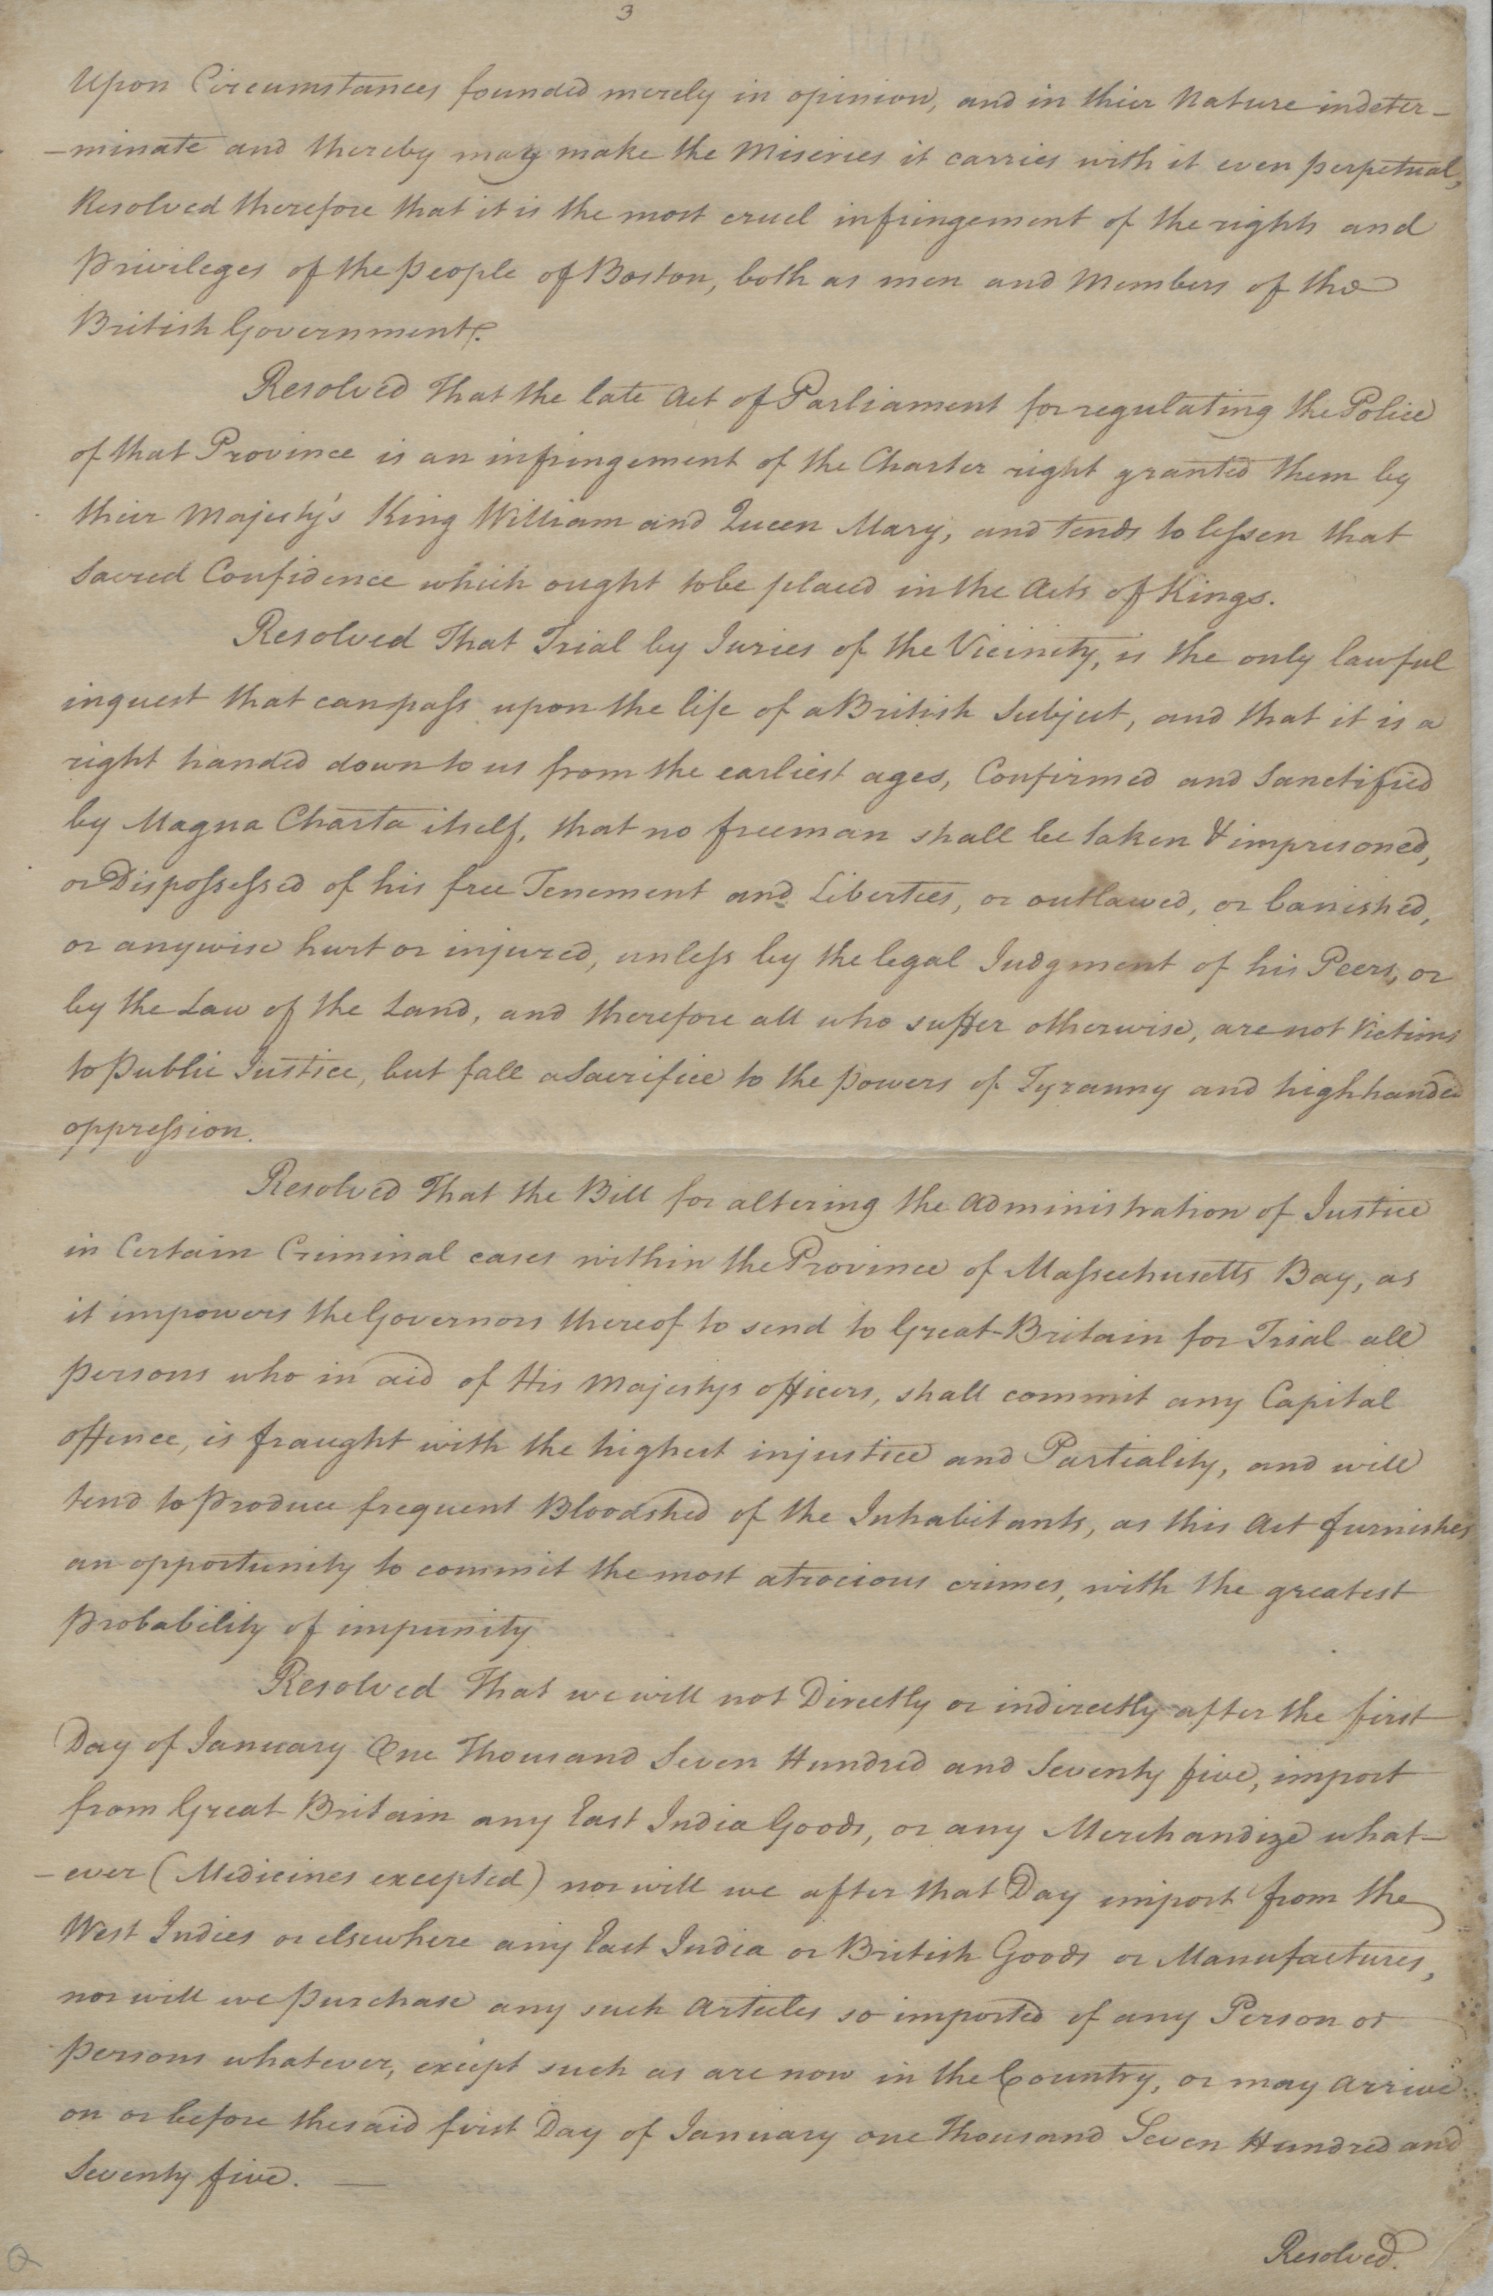 3
Upon Circumstances founded merely in opinion, and in thier Nature indeter-
-minate and thereby may make the Miseries it carries with it even perpetual,
Resolved therefore that it is the most cruel infringement of the rights and
Privileges of the People of Boston, both as men and Members of the
British Government.
Resolved That the late Act of Parliament for regulating the Police
of that Province is an infringement of the Charter right granted them by
thier Majesty's King William and Queen Mary, and tends to lessen that
Sacred Confidence which ought to be placed in the Acts of Kings.
Resolved That Trial by Juries of the Vicinity, is the only lawful
inquest that can pass upon the life of a British Subject, and that it is a
right handed down to us from the earliest ages, Confirmed and Sanctified
by Magna Charta itself, that no freeman shall be taken & imprisoned,
or Dispossessed of his free Tenement and Liberties, or outlawed, or banished,
or anywise hurt or injured, unless by the legal Judgment of his Peers, or
by the Law of the Land, and therefore all who suffer otherwise, are not Victims
to Public Justice, but fall a Sacrifice to the Powers of Tyranny and highhanded
oppression.
Resolved That the Bill for altering the Administration of Justice
in Certain Criminal cases within the Province of Massechusetts Bay, as
it impowers the Governors thereof to send to Great-Britain for Trial all
Persons who in aid of His Majestys officers, shall commit any Capital
offence, is fraught with the highest injustice and Partiality, and will
tend to Produce frequent Bloodshed of the Inhabitants, as this Act furnishes
an opportunity to commit the most atrocious crimes, with the greatest
Probability of impunity
Resolved That we will not Directly or indirectly after the first
Day of January One Thousand Seven Hundred and Seventy five, import
from Great Britain any East India Goods, or any Merchandize what-
-ever (Medicines excepted) nor will we after that Day import from the
West Indies or elsewhere any East India or British Goods or Manufactures,
nor will we Purchase any such Articles so imported of any Person or
Persons whatever, except such as are now in the Country, or may Arrive
on or before the said first Day of January one Thousand Seven Hundred and
Seventy five. —
Resolved.